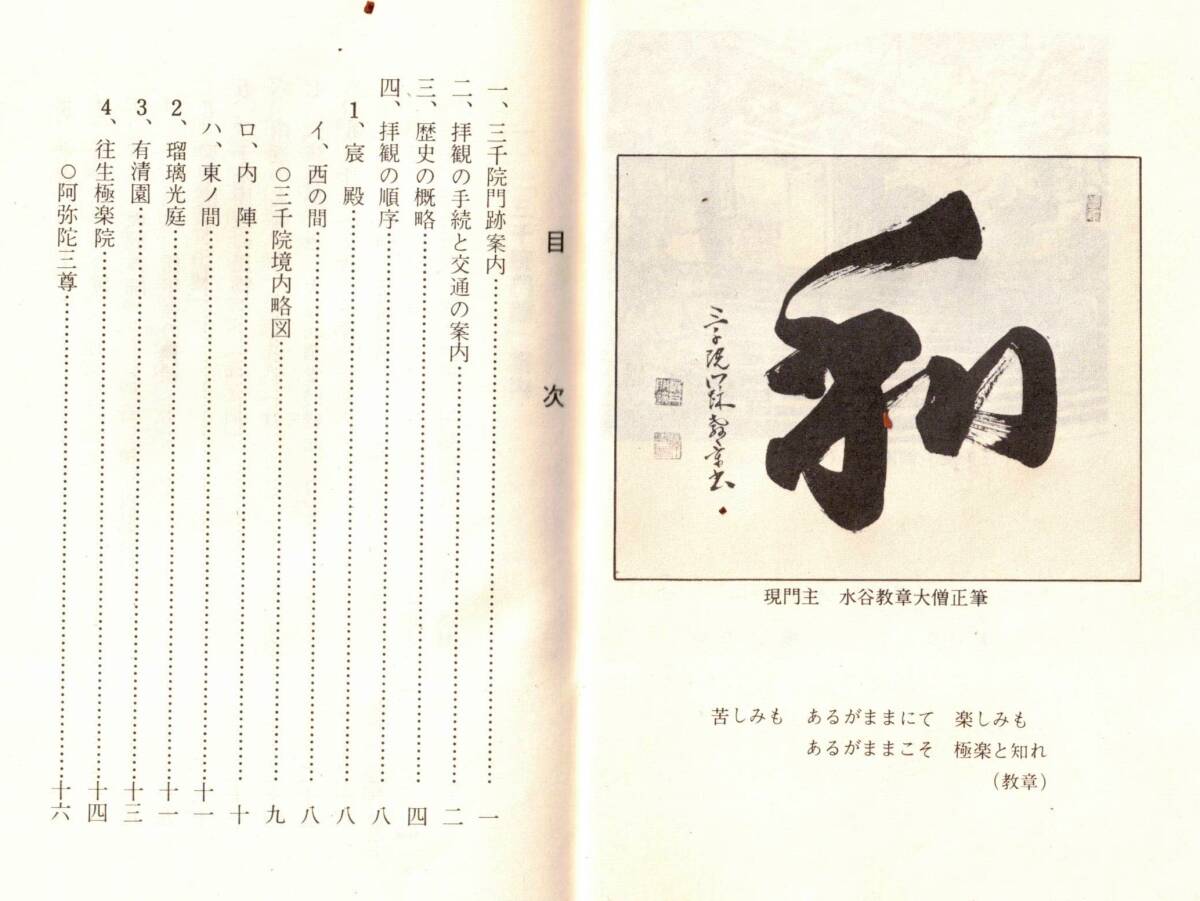 和
三千院門跡教章書
現門主 水谷教章大僧正筆
苦しみも あるがままにて 楽しみも
あるがままこそ 極楽と知れ
(教章)
目次
一、三千院門跡案内……一
二、拝観の手続と交通の案内……二
三、歴史の概略……四
四、拝観の順序……八
1、宸殿……八
イ、西の間……八
○三千院境内略図……九
ロ、内陣……十
ハ、東ノ間……十一
2、瑠璃光庭……十一
3、有清園……十三
4、往生極楽院……十四
○阿弥陀三尊……十六